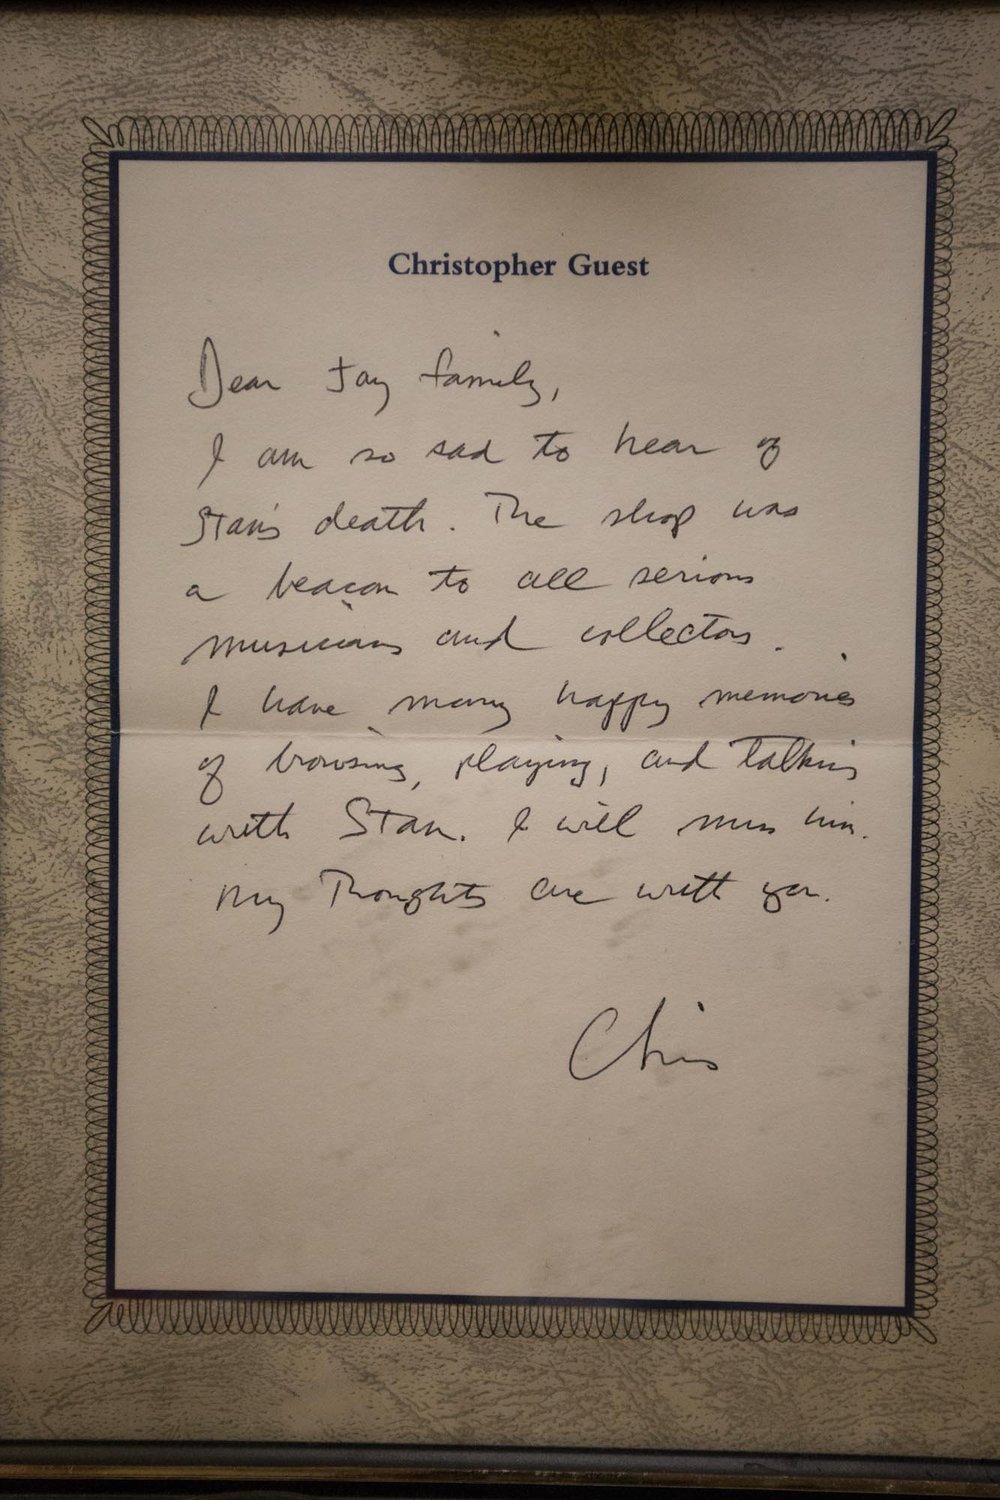 Christopher Guest
Dear Jay family,
I am so sad to hear of
Stan's death. The shop was
a beacon to all serious
musicians and collectors.
I have many happy memories
of browsing, playing, and talking
with Stan. I will miss him.
My Thoughts are with you.
Chris